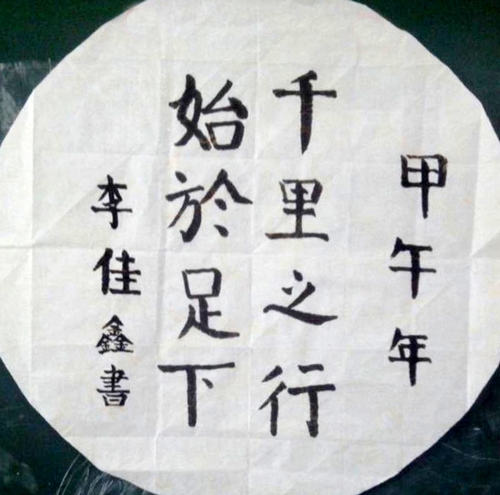 甲午年
千里之行
始於足下
李佳鑫書